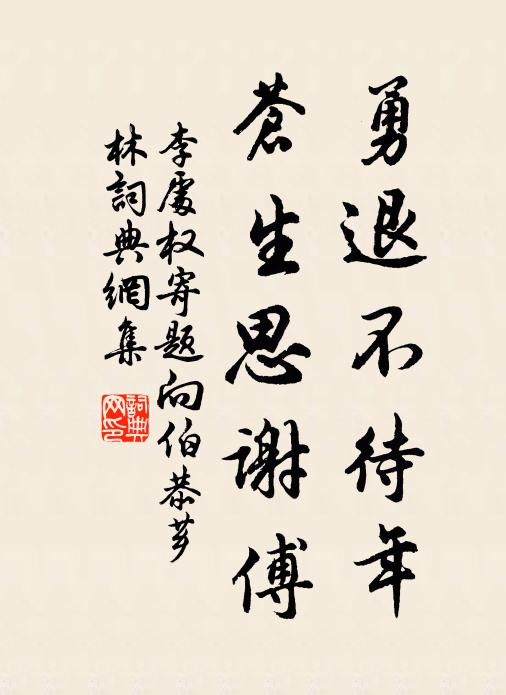 勇退不待年
蒼生思謝傅
李處权寄題向伯恭薌
林詞典網集
詞典網印